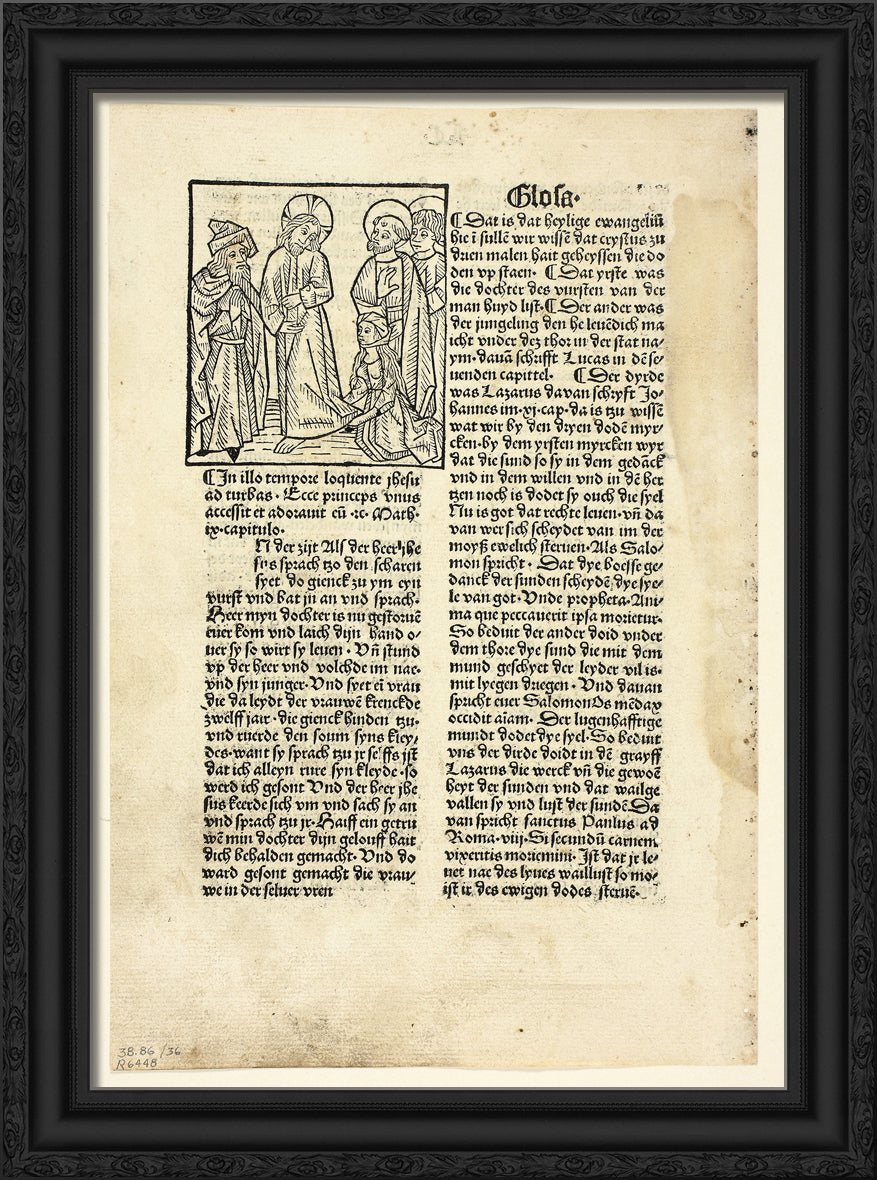 ¶ In illo tempore loquente jhesu
ad turbas. Ecce princeps vnus
accessit et adorauit eū ·ꝛc· Math·
ix·capitulo·
N der zijt Als der heer jhe
sus sprach tzo den scharen
syet do gienck zu ym eyn
vurst vnd bat in an vnd sprach·
Heer myn dochter is nu gestoruē
euer kom vnd laich dijn hand o⸗
uer sy so wirt sy leuen · Vñ stund
vp der heer vnd volchde im nae·
vnd syn junger·Vnd syet ei vrau
die da leydt der vrauwē krenckde
zwelff jair·die gienck hinden tzu·
vnd ruerde den soum syns kley⸗
des·want sy sprach tzu jr selffs jst
dat ich alleyn rure syn kleyde·so
werd ich gesont Vnd der heer jhe
sus keerde sich vm vnd sach sy an
vnd sprach tzu jr·Haiff ein getru
wē min dochter dijn gelouff hait
dich behalden gemacht·Vnd do
ward gesont gemacht die vrau⸗
we in der seluer vren
Glosa·
¶ Dat is dat heylige ewangeliū
hie ī sullē wir wissē dat crystus zu
dryen malen hait geheyssen die do
den vp staen· ¶ Dat yrste was
die dochter des vursten van der
man huyd list·¶ Der ander was
der jungeling den he leuēdich ma
icht vnder dez thor in der stat na⸗
ym·dauā schrifft Lucas in dē se⸗
uenden capittel· ¶ Der dyrde
was Lazarus davan schryft Jo⸗
hannes im·xj·cap·da is tzu wissē
wat wir by den dryen dodē myr⸗
cken·by dem yrsten myrcken wyr
dat die sund so sy in dem gedāck
vnd in dem willen vnd in dē her
tzen noch is dodet sy ouch die syel
Nu is got dat rechte leuen·vñ da
van wer sich scheydet van im der
moyß ewelich steruen·Als Salo⸗
mon spricht· Dat dye boesse ge⸗
danck der sunden scheydē dye sye⸗
le van got·Vnde propheta·Ani⸗
ma que peccauerit ipsa morietur·
So beduit der ander doid vnder
dem thore dye sund die mit dem
mund geschyet der leyder vil is·
mit lyegen driegen·Vnd dauan
spricht euer Salomon Os mēdax
occidit aīam· Der lugenhafftige
mundt dodet dye syel·So beduit
vns der dirde doidt in dē grayff
Lazarus die werck vñ die gewoē
heyt der sunden vnd dat wailge
vallen sy vnd lust der sundē·Da
van spricht sanctus Paulus ad
Roma·viij·Si secundū carnem
vixeritis moriemini· Jst dat jr le⸗
uet nae des lyues waillust so mo⸗
ist ir des ewigen dodes steruē·
38.86/36
R6448